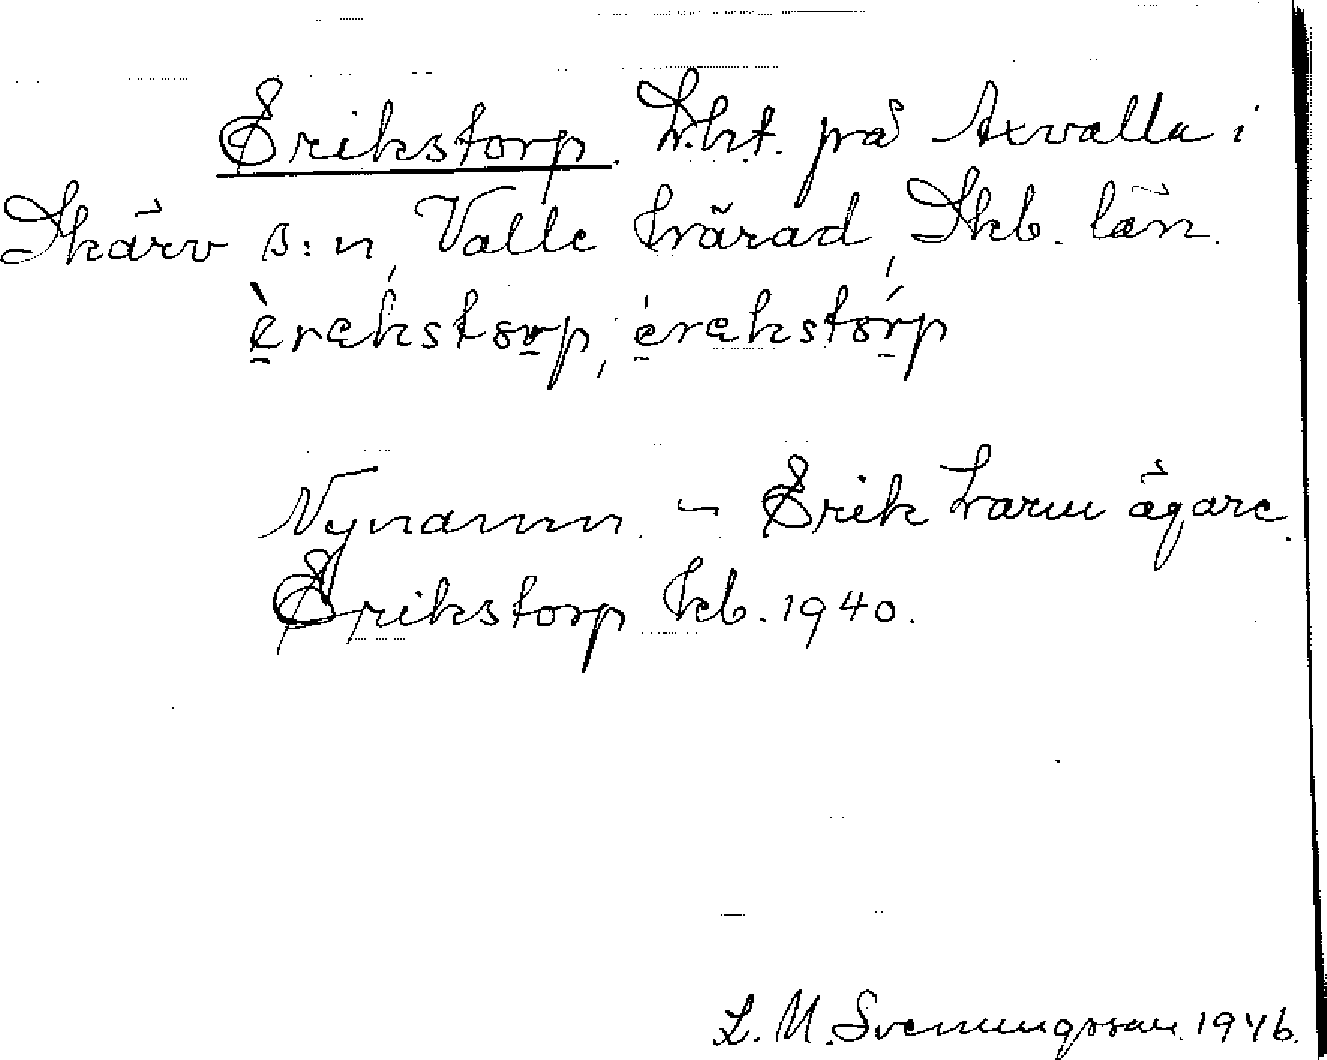 Erikstorp. Lht. på Axvalla i
Skärv s:n, Valle härad, Skb. län.
èrekstorp, érekstórp
Nynamn. – Erik ägare.
Erikstorp kb. 1940.
L. M. Svenungsson 1946.